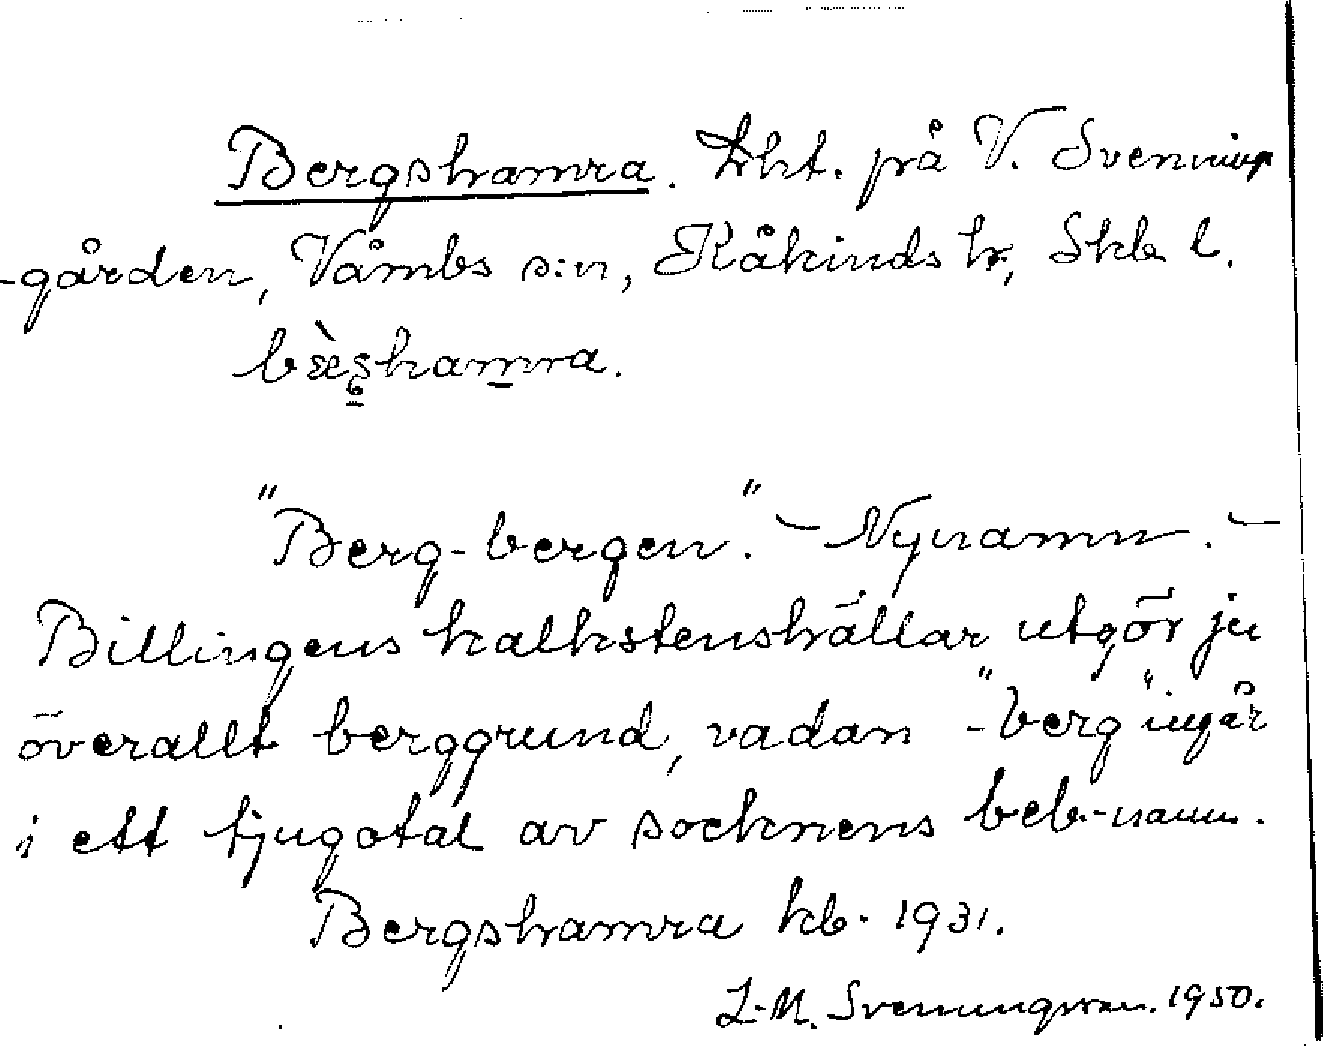 Bergshamra. Lht. på V. Svenning
-gården, Våmbs s:n, Kåkinds hr, Skb. l.
bæ̀s̠hamra.
"Berg-bergen". – Nynamn. –
Billingens kalkstenshällar utgör ju
överallt berggrund, vadan -"berg" ingår
i ett tjugotal av socknens beb.-namn.
Bergshamra kb. 1931.
L-M. Svenungsson. 1950.